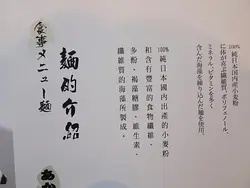 100%純日本国内産小麦粉
に、ぬめり多い繊維質、ポリフェノール、
ミネラル、ビタミンを多く
含んだ海藻を練り込んだ麺を使用。
100%純日本國内出產的小麥粉
和含有豐富的食物纖維、
多酚、褐藻糖膠、維生素、
纖維質的海藻所製成。
麵的介紹
食事メニュー麺
あか